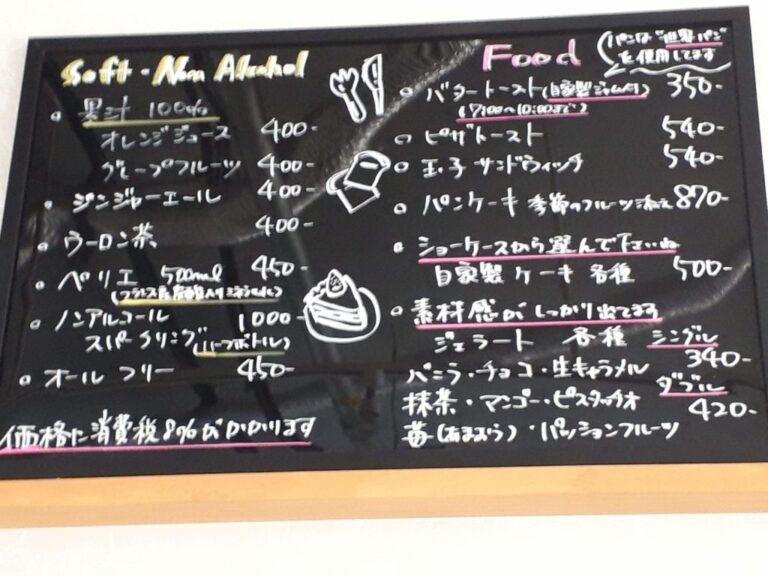 Soft・Non Alcohol
果汁 100%
オレンジジュース 400-
グレープフルーツ 400-
ジンジャーエール 400-
ウーロン茶 400-
ペリエ 500ml 450-
(フランス産炭酸入りミネラル)
ノンアルコール 1000-
スパークリング(ハーフボトル)
オールフリー 450-
価格に消費税8%がかかります
Food
パンは"世界パン"
を使用してます
バタートースト(自家製ジャム付) 350-
(7:00〜10:00まで)
ピザトースト 540-
玉子サンドウィッチ 540-
パンケーキ 季節のフルーツ添え 870-
ショーケースから選んで下さいね
自家製ケーキ 各種 500-
素材感がしっかり出てます
ジェラート 各種 シングル
340-
バニラ・チョコ・生キャラメル
ダブル
抹茶・マンゴー・ピスタッチオ 420-
苺(あまおう)・パッションフルーツ